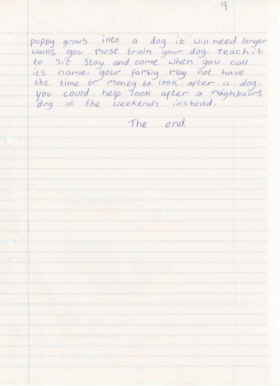 9
puppy grows into a dog it will need longer
walks you must train your dog. Teach it
to sit stay and come when you call
its name. your family may not have
the time or money to look after a dog.
you could help look after a neighbours
dog at the weekends instead.
The end